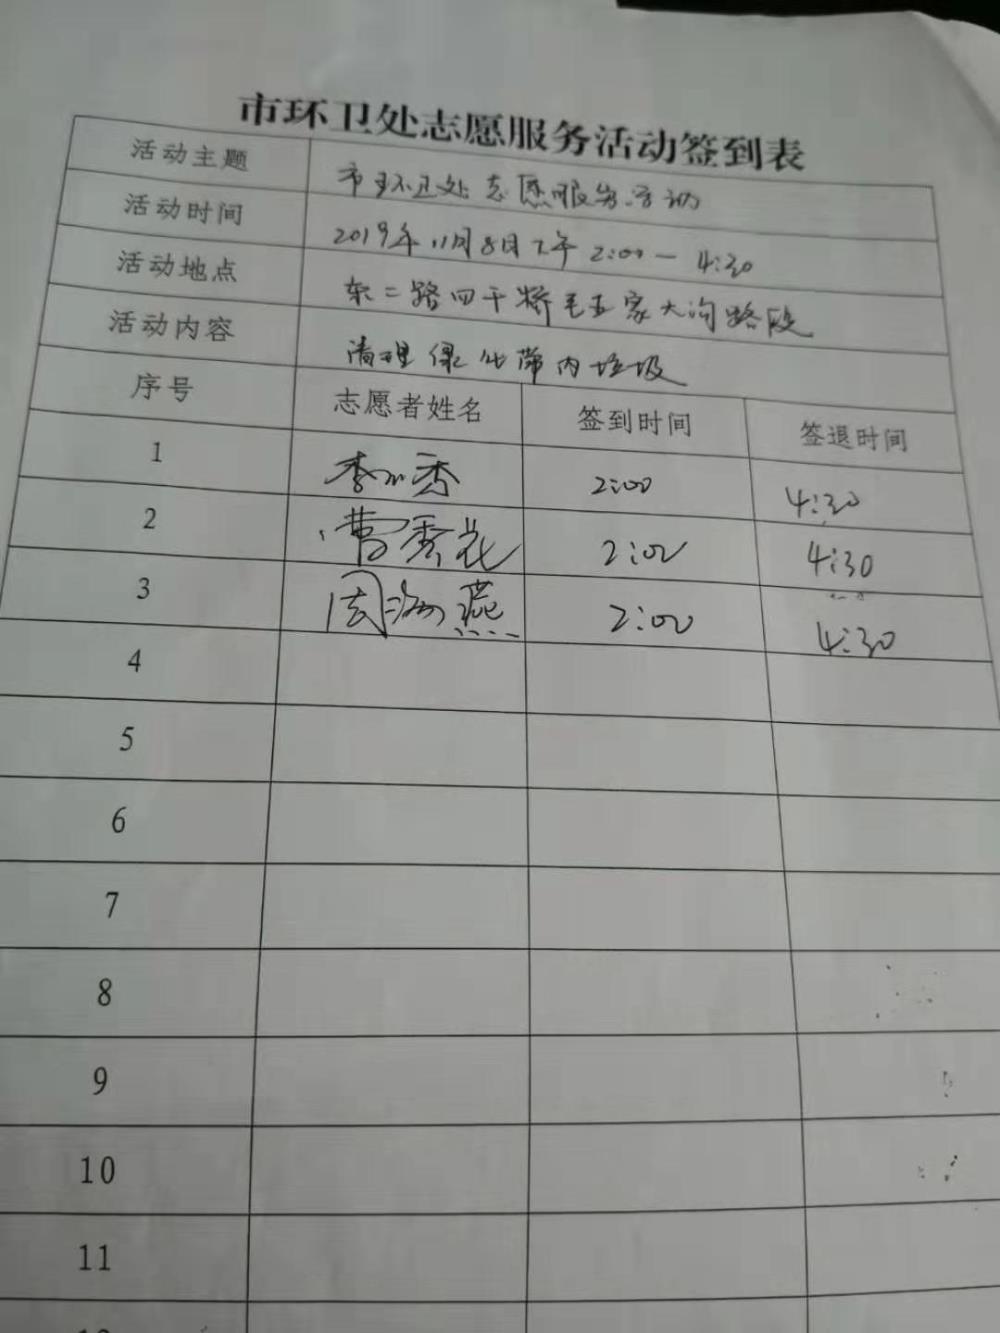 市环卫处志愿服务活动签到表
活动主题 市环卫处志愿服务活动
活动时间 2019年11月8日下午2:00—4:30
活动地点 东二路四干桥至五家大沟路段
活动内容 清理绿化带内垃圾
序号 志愿者姓名 签到时间 签退时间
1 李小秀 2:00 4:30
2 曹秀花 2:00 4:30
3 周海燕 2:00 4:30
4
5
6
7
8
9
10
11